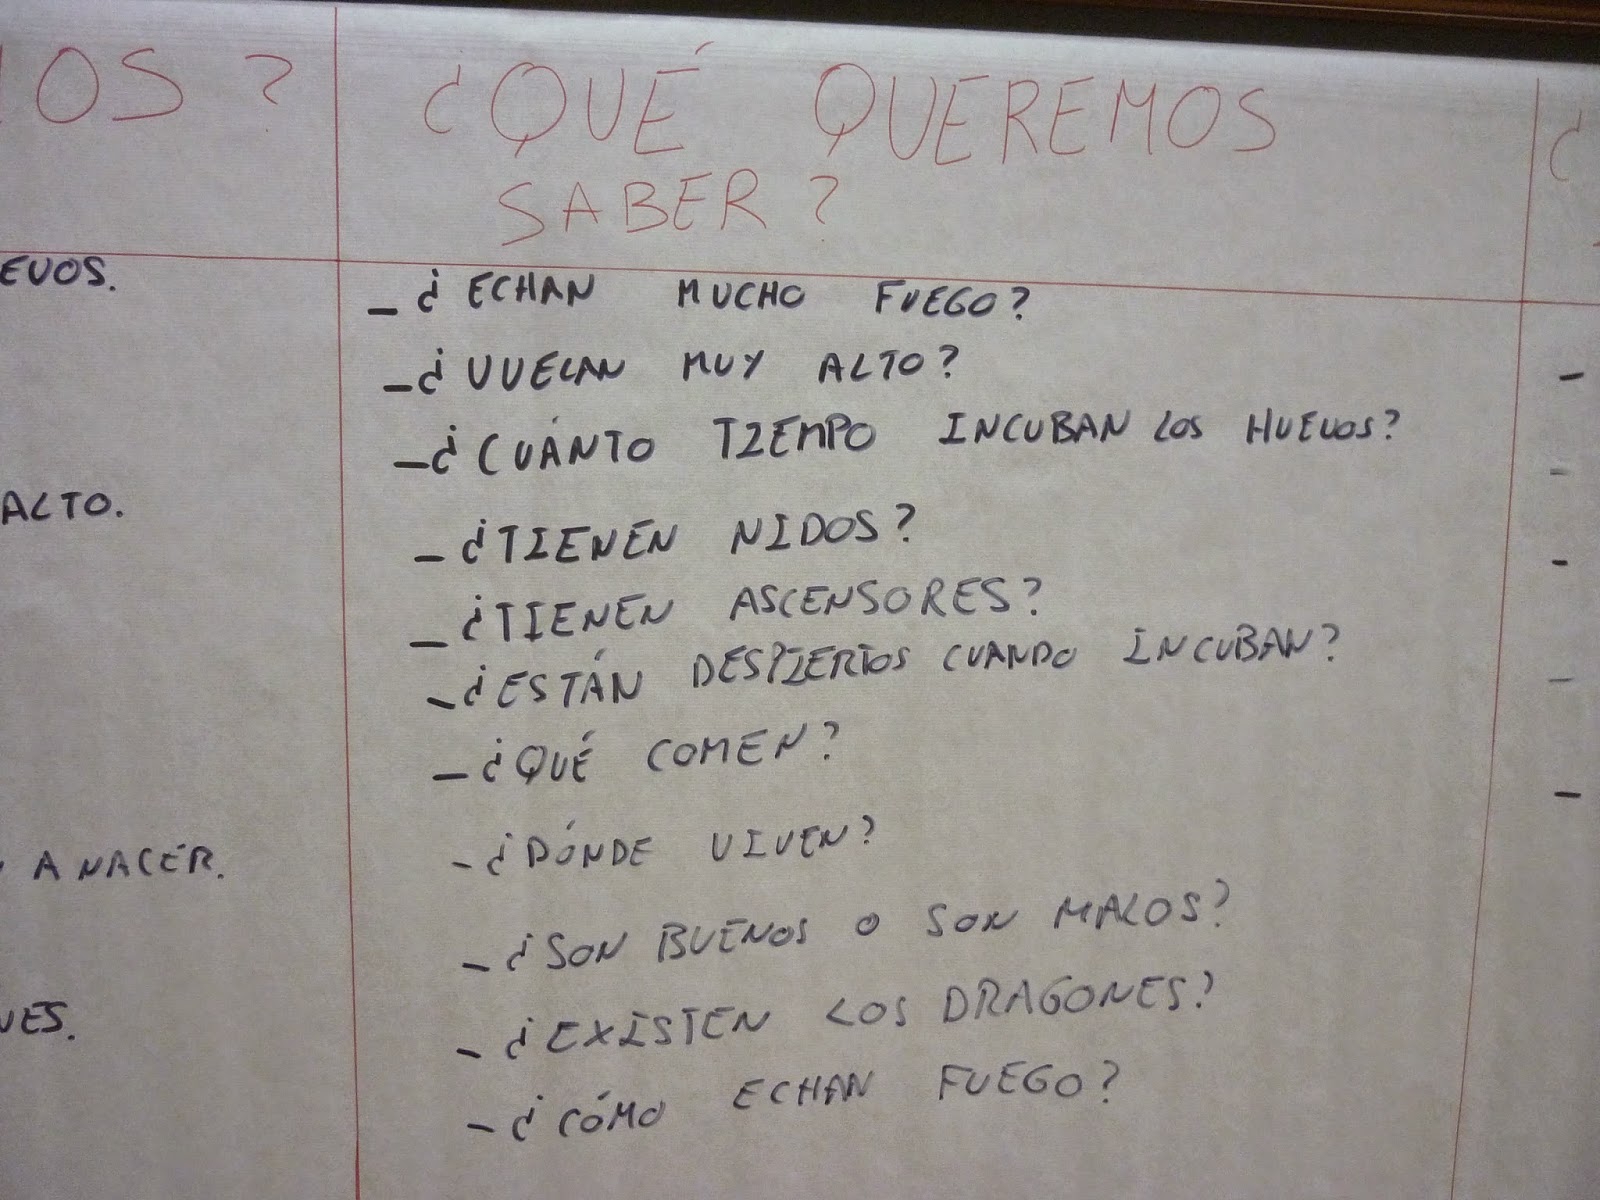 ¿QUÉ QUEREMOS
SABER?
ALTO.
A NACER.
- ¿ECHAN MUCHO FUEGO?
- ¿VUELAN MUY ALTO?
- ¿CUÁNTO TIEMPO INCUBAN LOS HUEVOS?
- ¿TIENEN NIDOS?
- ¿TIENEN ASCENSORES?
- ¿ESTÁN DESPIERTOS CUANDO INCUBAN?
- ¿QUÉ COMEN?
- ¿DÓNDE VIVEN?
- ¿SON BUENOS O SON MALOS?
- ¿EXISTEN LOS DRAGONES?
- ¿CÓMO ECHAN FUEGO?